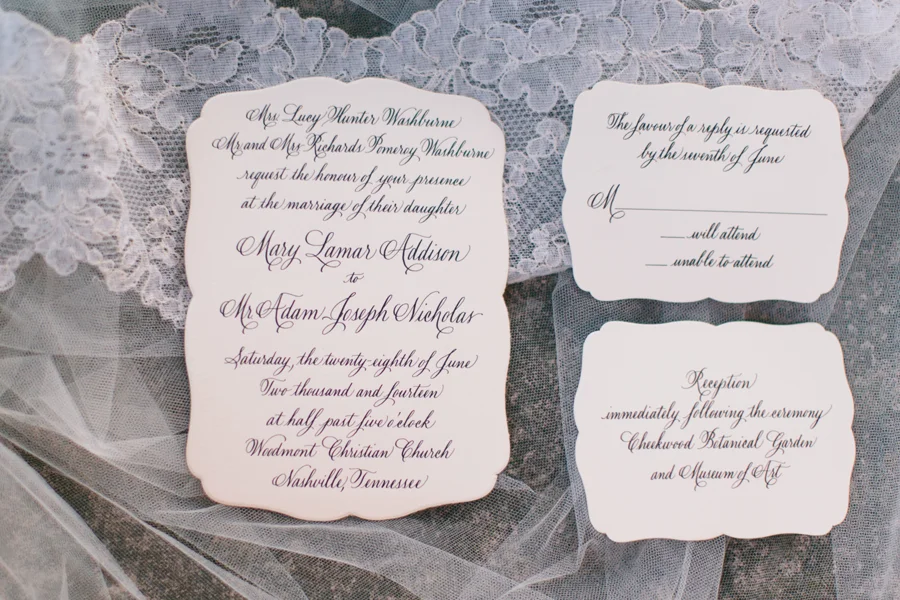 Mrs. Lucy Hunter Washburne
Mr. and Mrs. Richards Pomeroy Washburne
request the honour of your presence
at the marriage of their daughter
Mary Lamar Addison
to
Mr. Adam Joseph Nicholas
Saturday, the twenty-eighth of June
Two thousand and fourteen
at half past five o'clock
Woodmont Christian Church
Nashville, Tennessee
The favour of a reply is requested
by the seventh of June
M
will attend
unable to attend
Reception
immediately following the ceremony
Cheekwood Botanical Garden
and Museum of Art